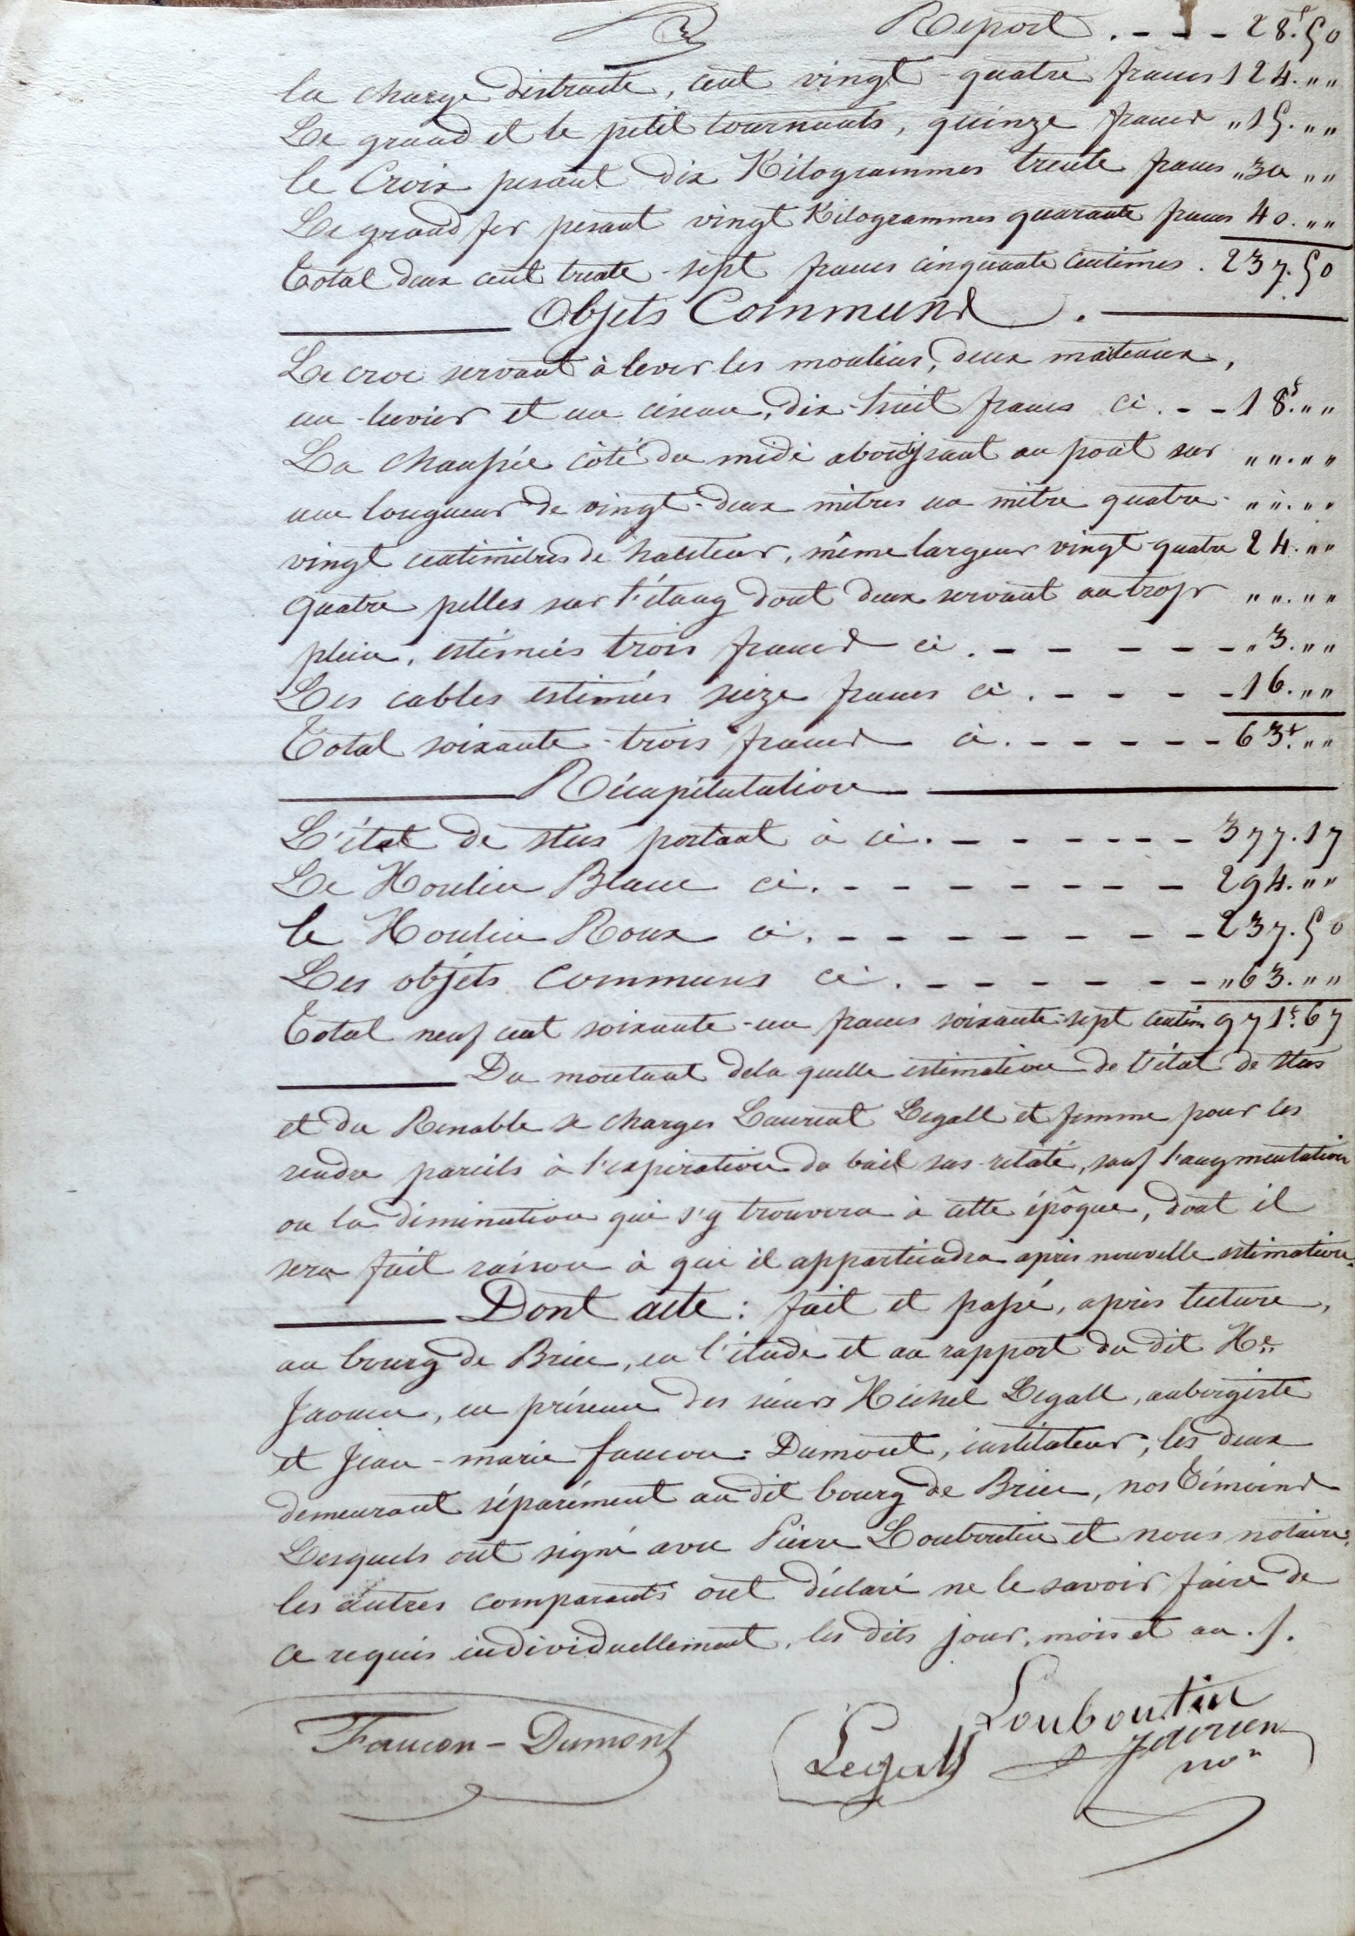 Report . - - - 28.f50
la charge distraite, cent vingt-quatre francs 124. „„
Le grand et le petit tournants, quinze francs „15. „„
le Croix pesant dix Kilogrammes trente francs „30 „„
Le grand fer pesant vingt Kilogrammes quarante francs 40. „„
Total deux cent trente-sept francs cinquante centimes . 237.50
Objets Communs .
Le croc servant à lever les moulins, deux marteaux,
un levier et un ciseau, dix-huit francs ci . - - 18f. „„
La chaussée côté du midi aboutissant au pont sur „„.„„
une longueur de vingt-deux mètres un mètre quatre- „„.„„
vingt centimètres de hauteur, même largeur vingt-quatre 24. „„
quatre pelles sur l'étang dont deux servant au trop „„.„„
plein, estimées trois francs ci . - - - - - - „3. „„
Les cables estimés seize francs ci . - - - - 16. „„
Total soixante-trois francs ci . - - - - - - 63f. „„
Récapitulation
L'état de stus portant à ci . - - - - - - - 377.17
Le Moulin Blanc ci . - - - - - - - - 294. „„
le Moulin Roux ci . - - - - - - - - 237.50
Les objéts communs ci . - - - - - - „63. „„
Total neuf cent soixante-un francs soixante-sept centim 971f.67
Du montant dela quelle estimation de l'état de stus
et du Renable se charges Laurent Legall et femme pour les
rendre pareils à l'expiration du bail sus-relaté, sauf l'augmentation
ou la diminution qui s'y trouvera à cette épôque, dont il
sera fait raison à qui il appartiendra après nouvelle estimation.
Dont acte : fait et passé, après lecture,
au bourg de Briec, en l'étude et au rapport du dit Me..
Jaouen, en présence des sieurs Michel Legall, aubergiste
et Jean-marie faucon-Dumont, instituteur, les deux
demeurant séparément au dit bourg de Briec, nos Témoins
Lesquels ont signé avec Pierre Louboutin et nous notaire;
les autres comparants ont déclaré ne le savoir faire de
ce requis individuellement, les dits jour, mois et an ./.
Faucon-Dumont
Louboutin
Legall
Jaouen
no n